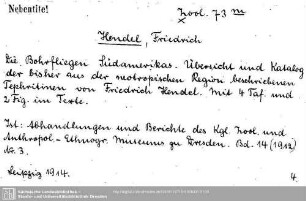 Nebentitel
Zool. 73 m
Hendel, Friedrich
Die Bohrfliegen Südamerikas. Übersicht und Katalog
der bisher aus der neotropischen Region beschriebenen
Tephritinen von Friedrich Hendel. Mit 4 Taf. und
2 Fig. im Texte.
Ist: Abhandlungen und Berichte des Kgl. Zool. und
Anthropol.-Ethnogr. Museums zu Dresden. Bd. 14 (1912)
Nr. 3.
Leipzig 1914.
4.
Sächsische Landesbibliothek -
Staats- und Universitätsbibliothek Dresden